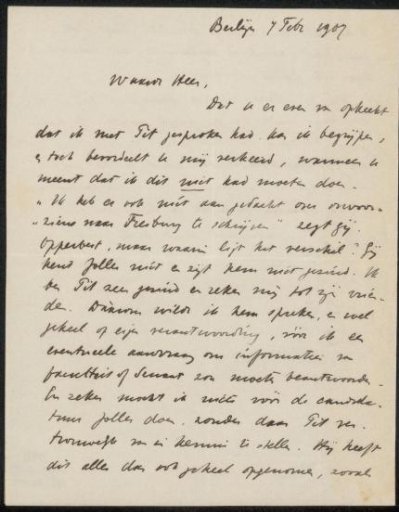 Berlijn 7 Febr 1907
Waarde Heer,
Dat U er even van opkeekt
dat ik met Pit gesproken had kan ik begrijpen,
en toch beoordeelt U mij verkeerd, wanneer U
meent dat ik dit niet had moeten doen.
"Ik heb er ook niet aan gedacht om onvoor-
"ziens naar Freiburg te schrijven" zegt gij.
Opperbest, maar waarin ligt het verschil? Gij
kend Jolles niet en zijt hem niet gezind. Ik
ben Pit zeer gezind en reken mij tot zijn vrien-
den. Daarom wilde ik hem spreken, en wel
geheel op eigen verantwoording, vóór ik een
eventueele aanvraag om informatie van
faculteit of Senaat zou moeten beantwoorden.
En zeker mocht ik niets vóór de candida-
tuur Jolles doen, zonder daar Pit ver-
trouwelijk van in kennis te stellen. Hij heeft
dit alles dan ook geheel opgenomen, zooal